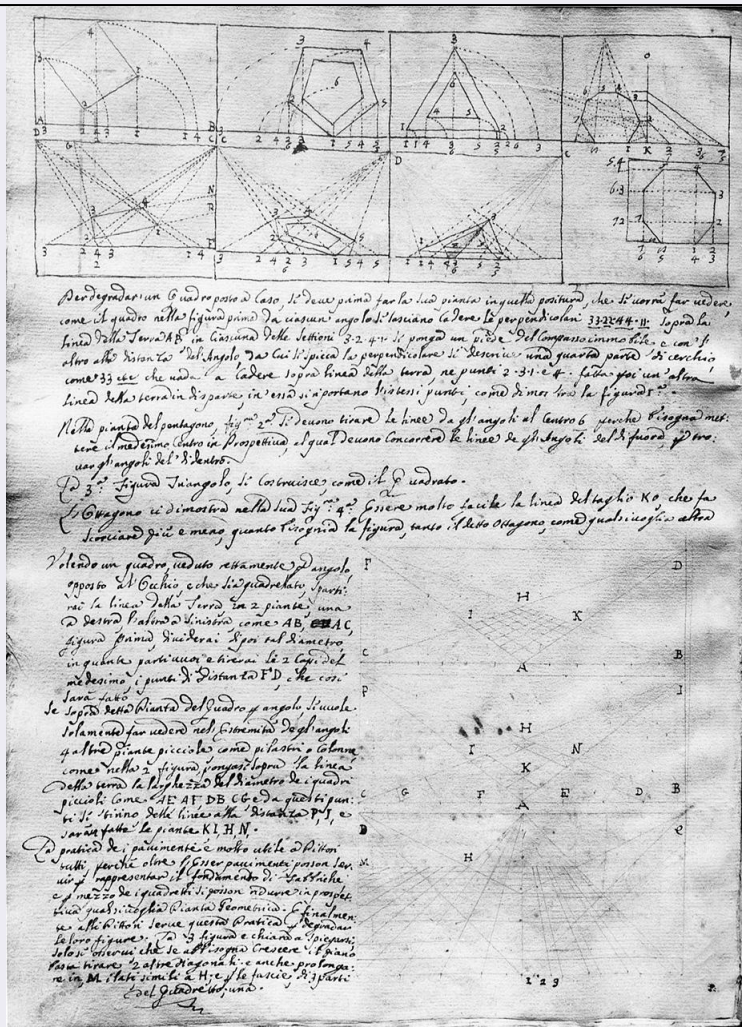 Per degradar un Quadro posto a Caso, si deve prima far la sua pianta in quella positura, che si vorrà far vedere,
come il quadro nella figura prima da ciascun angolo si lasciano Cadere le perpendicolari 33.22.44.11. sopra la
linea della Terra AB, in Ciascuna delle Settioni 3.2.4.1. si ponga un piede del Compasso immobile e con l'
altro alla distanza del Angolo, da Cui si spicca la perpendicolare si descriva una quarta parte di cerchio
come 33 che vada a Cadere sopra linea della terra ne punti 2.3.1. e 4. fatta poi un'altra
linea della terra in disparte in essa si riportano l'istessi punti, come dimostra la figura
Nella pianta del pentagono, fig. 2. si devono tirare le linee da gl'angoli al Centro 6 perche bisogna met:
tere il medesimo Centro in Prospettiva, al qual devono Concorrere le linee de gl'Angoli del di fuora, p tro:
var gl'angoli del di dentro.
La 3. figura Triangolo, si Costruisce come il Quadrato.
L'Ottagono vi dimostra nella sua fig. 4. Essere molto facile la linea del taglio KO, che fa
scorciare più e meno, quanto bisognia la figura, tanto il detto Ottagono, come qualsivoglia altra
Volendo un quadro, veduto rettamente p angolo
opposto al Occhio, e che sia quadrelato, sparti:
rai la linea della Terra in 2 piante, una
a destra l'altra a sinistra come AB, AC,
figura prima, dividerai di poi tal diametro
in quante parti vuoi e tirerai le 2 Capi del
medesimo i punti di distanza F D, che così
sarà fatto.
Se sopra detta Pianta del Quadro p angolo, si vuole
solamente far vedere nell'Estremità de gl'angoli
4 altre piante picciole come pilastri o Colonne
come nella 2 figura, pongasi sopra la linea
della terra la larghezza del diametro de i quadri
piccioli Come AE AF DB CG e da questi pun:
ti si tirino delle linee alla distanza P, I, e
saran fatte le piante K I, H, N.
La pratica de i pavimenti è molto utile a Pittori
tutti perche oltre l'Esser pavimenti posson ser:
vir p rappresentar il fondamento di fabbriche
e p mezzo de i quadretti si posson ridurre in prospet:
tiva qualsivoglia Pianta Geometrica. E finalmen:
te alli Pittori serve questa Pratica p degradar
le loro figure. La 3 figura e chiara a spiegarsi,
solo si osservi che se abbisogna Crescere il piano
basta tirare 2 altre diagonali e anche prolonga:
re in M i lati simili a H, e p le fascie di 3 parti
del Quadretto, una.
F D
H
I K
C A B
P I
H
I N
K
C G F A E D B
D C
M H
1 2 3